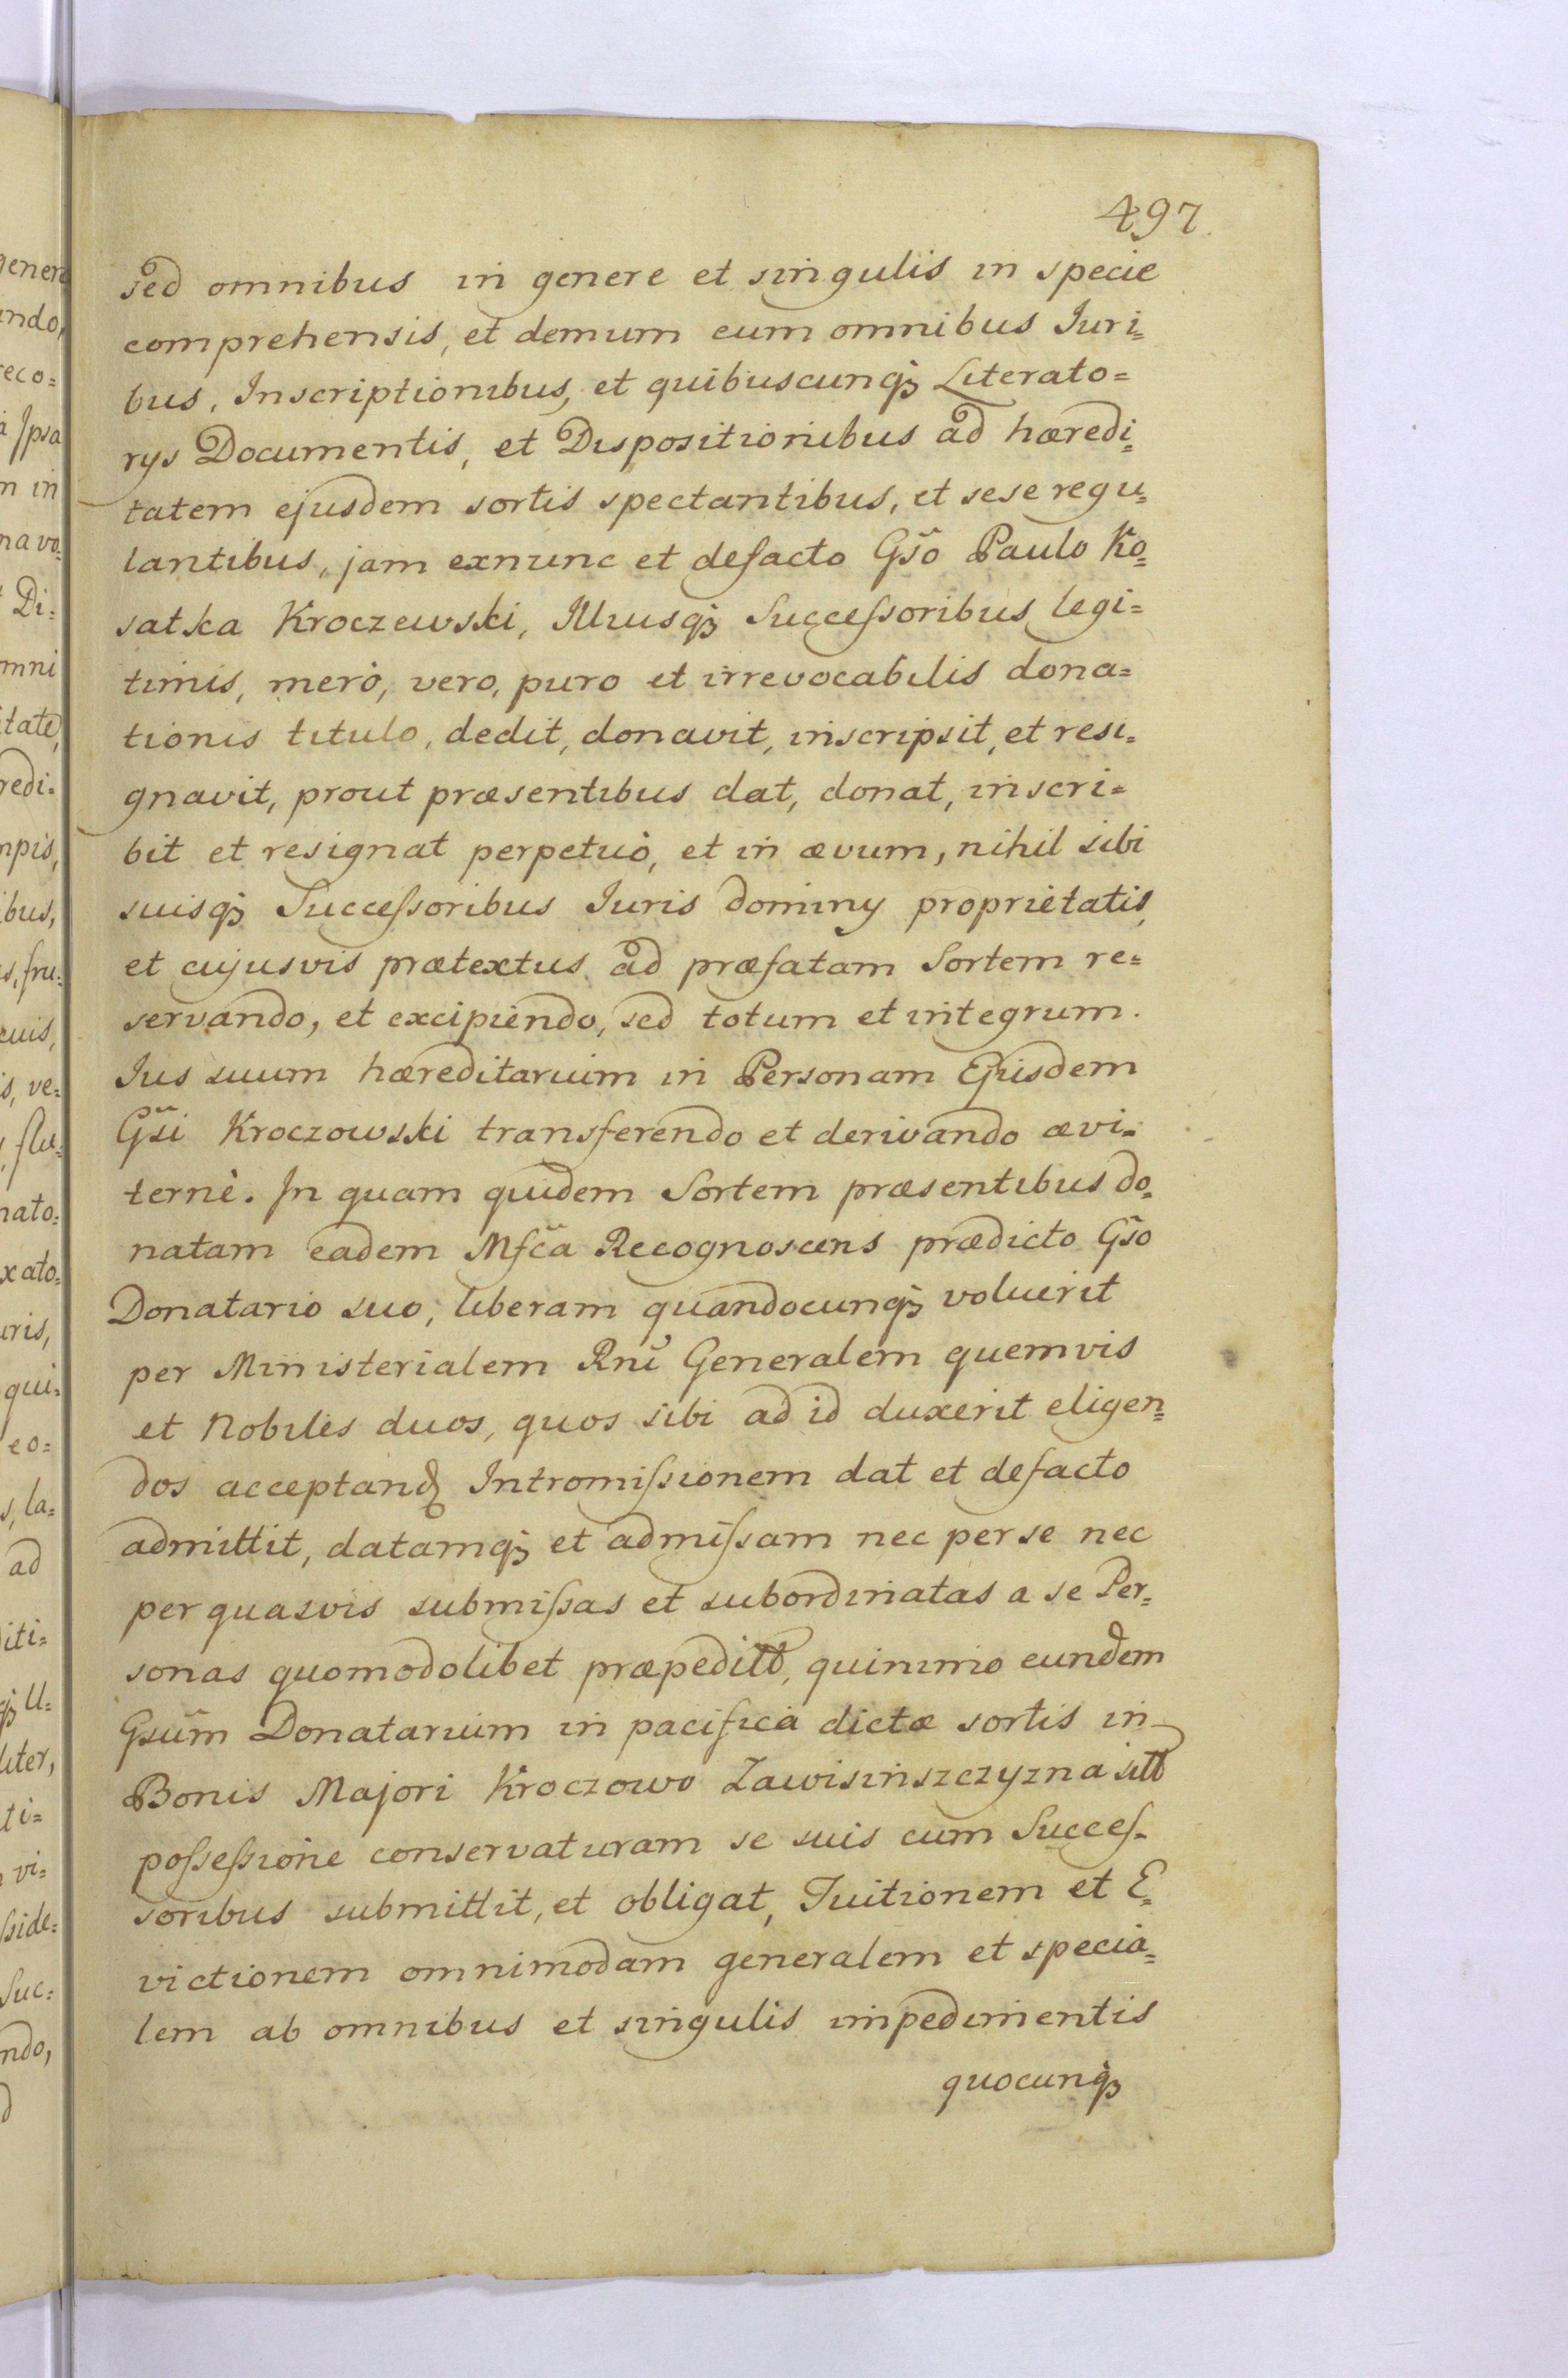 497.
sed omnibus in genere et singulis in specie
comprehensis, et demum cum omnibus Iuri=
bus, Inscriptionibus, et quibuscunqꝫ Literato=
rys Documentis, et Dispositionibus ad hæredi=
tatem ejusdem sortis spectantibus, et sese regu=
lantibus, jam exnunc et defacto Gso Paulo Ko=
satka Kroczewski, Illiusqꝫ Successoribus legi=
timis, merò, vero, puro et irrevocabilis dona=
tionis titulo, dedit, donavit, inscripsit, et resi=
gnavit, prout præsentibus dat, donat, inscri=
bit et resignat perpetuò, et in ævum, nihil sibi
suisqꝫ Successoribus Iuris dominy proprietatis,
et cujusvis prætextus ad præfatam Sortem re=
servando, et excipiendo, sed totum et integrum.
Ius suum hæreditarium in Personam Ejusdem
Gsi Kroczowski transferendo et derivando ævi=
ternè. In quam quidem Sortem præsentibus do=
natam eadem Mfca Recognoscens prædicto Gso
Donatario suo, liberam quandocunqꝫ voluerit
per Ministerialem Rni Generalem quemvis
et Nobiles duos, quos sibi ad id duxerit eligen=
dos acceptand Intromissionem dat et defacto
admittit, datamqꝫ et admissam nec per se nec
per quasvis submissas et subordinatas a se Per=
sonas quomodolibet præpeditt, quinimo eundem
Gsum Donatarium in pacifica dictæ sortis in
Bonis Majori Kroczowo Zawisinszczyzna sitt
possessione conservaturam se suis cum Succes=
soribus submittit, et obligat, Tuitionem et E=
victionem omnimodam generalem et specia=
lem ab omnibus et singulis impedimentis
quocunqꝫ